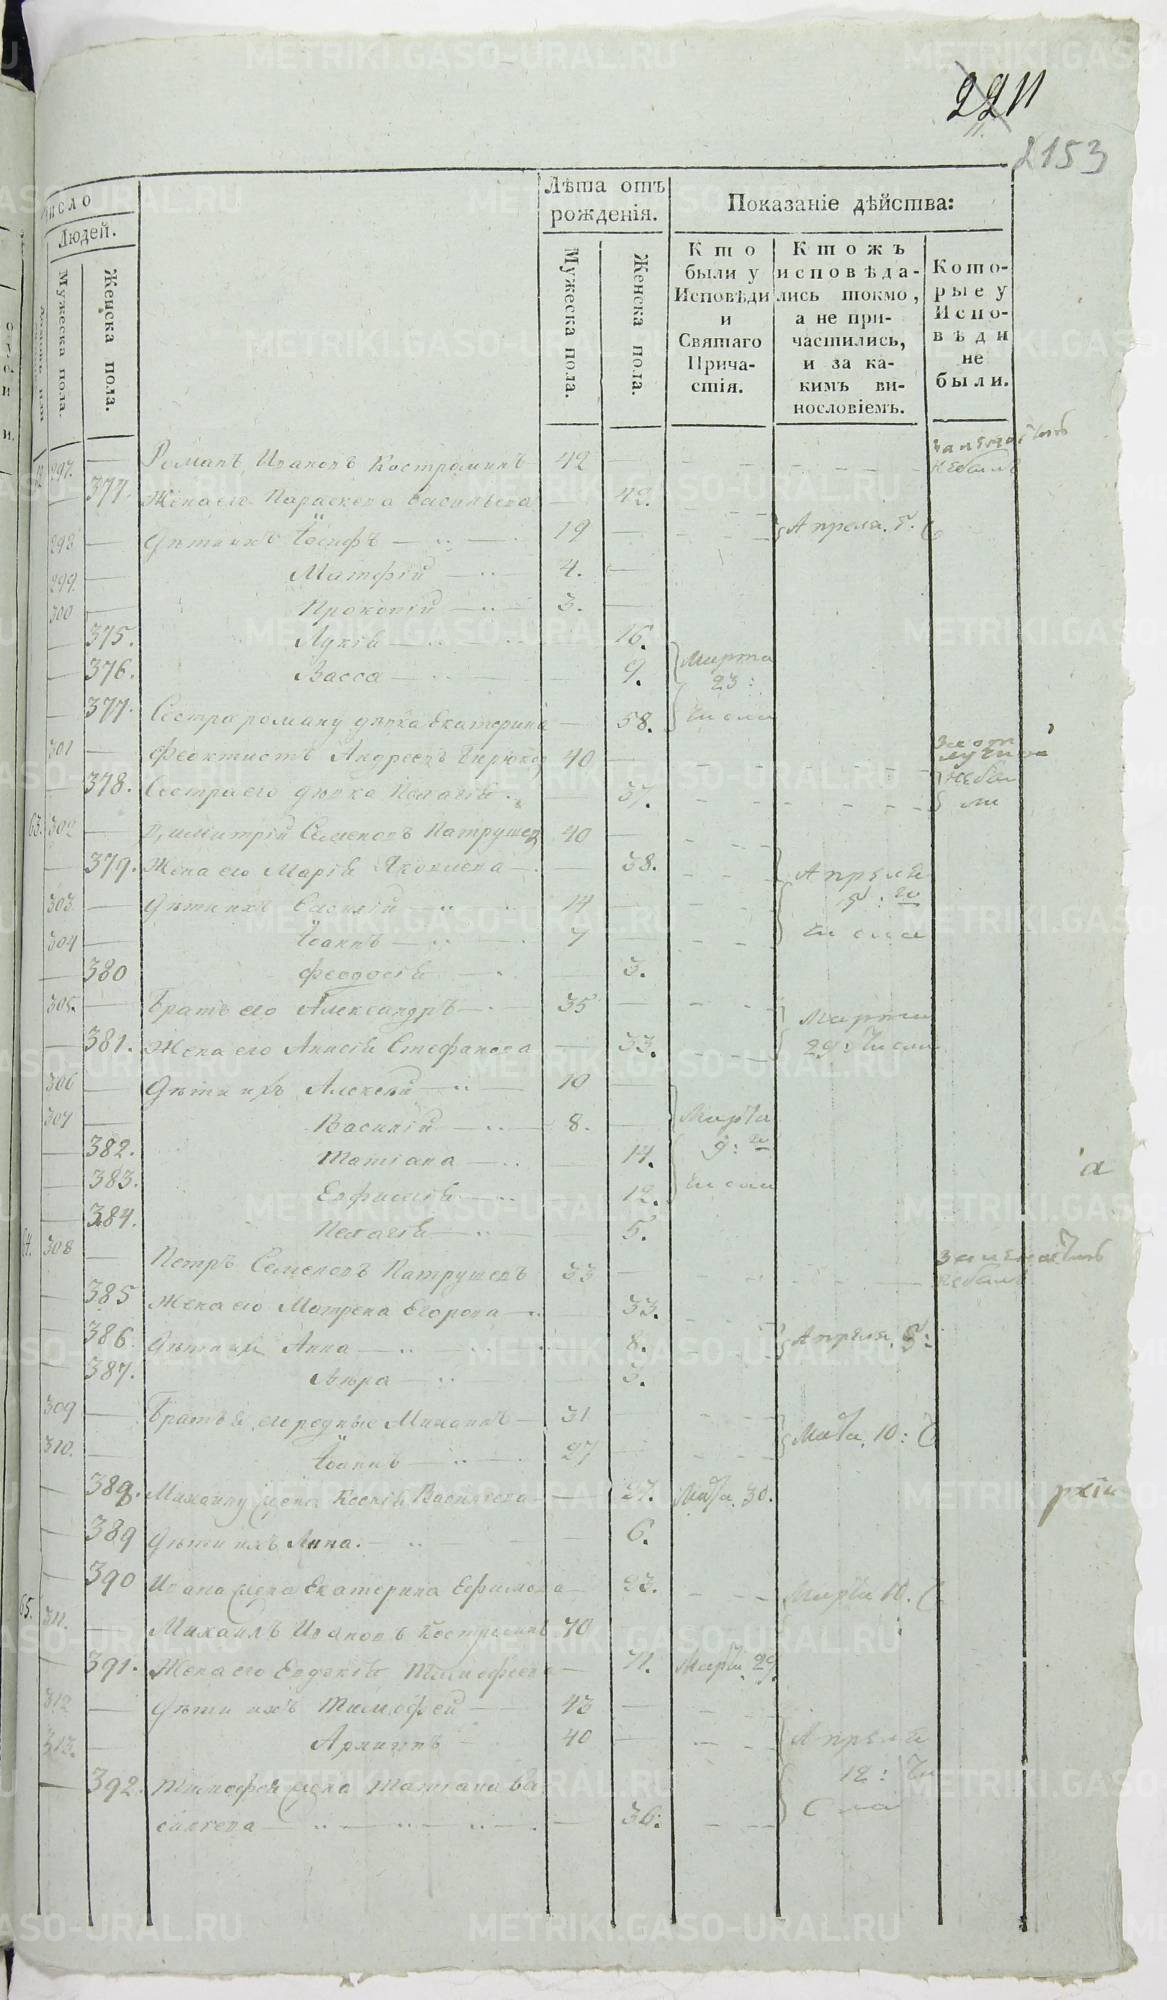 2211
2153
число
Людей.
Мужеска пола.
Женска пола.
Лѣта отъ рожденія.
Мужеска пола.
Женска пола.
Показаніе дѣйства:
Кто были у Исповѣди и Святаго Причастія.
Ктожъ исповѣдались токмо, а не причастились, и за какимъ винословіемъ.
Которые у Исповѣди не были.
297. Романъ Ивановъ Костроминъ 42
377. Жена его Параскева Васильева 42.
298 Дѣти ихъ Іосифъ 19 Апреля. 5.
299. Матфій 4.
300 Прокопій 3.
375. Лукія 16.
376. Васса 9. Марта 23:
377. Сестра роману дѣвка Екатерина 58. числа
301 Феоктистъ Андреевъ Бирюков 40
378. Сестра его дѣвка Пелагія 37.
63. 302 Димитрій Семеновъ Патрушев 40
379. Жена его Марія Яковлева 38. Апреля
303. Дѣти ихъ Василій 14
304 Іоаннъ 7 числа
380 Феодосія 3.
305. Братъ его Александръ 35 Марта
381. Жена его Анисія Стефанова 33. 29: числа
306 Дѣти их Алексѣй 10
307 Василій 8. Марта
382. Татіана 14. 9:
383. Евфимія 12. числа
384. Пелагія 5.
64. 308 Петръ Семеновъ Патрушевъ 33
385 Жена его Матрена Егорова 33.
386 Дѣти их Анна 8. Апреля. 5:
387. Вѣра 3.
309 Братья его родные Михаилъ 31 Марта. 10:
310. Іоаннъ 27
389. Михаилу жена Ксенія Васильева 27. Марта. 30.
389 Дѣти ихъ Анна. 6.
390 Ивана жена Екатерина Ефимова 23. Марта 10.
65. 311. Михаилъ Ивановъ Костроминъ 70
391. Жена его Евдокія Тимофеева 71. Марта. 29.
312 Дѣти ихъ Тимофей 43
313. Архипъ 40 Апреля
392. Тимофея жена Татіана Ва 12: чи
силиева 36: сла